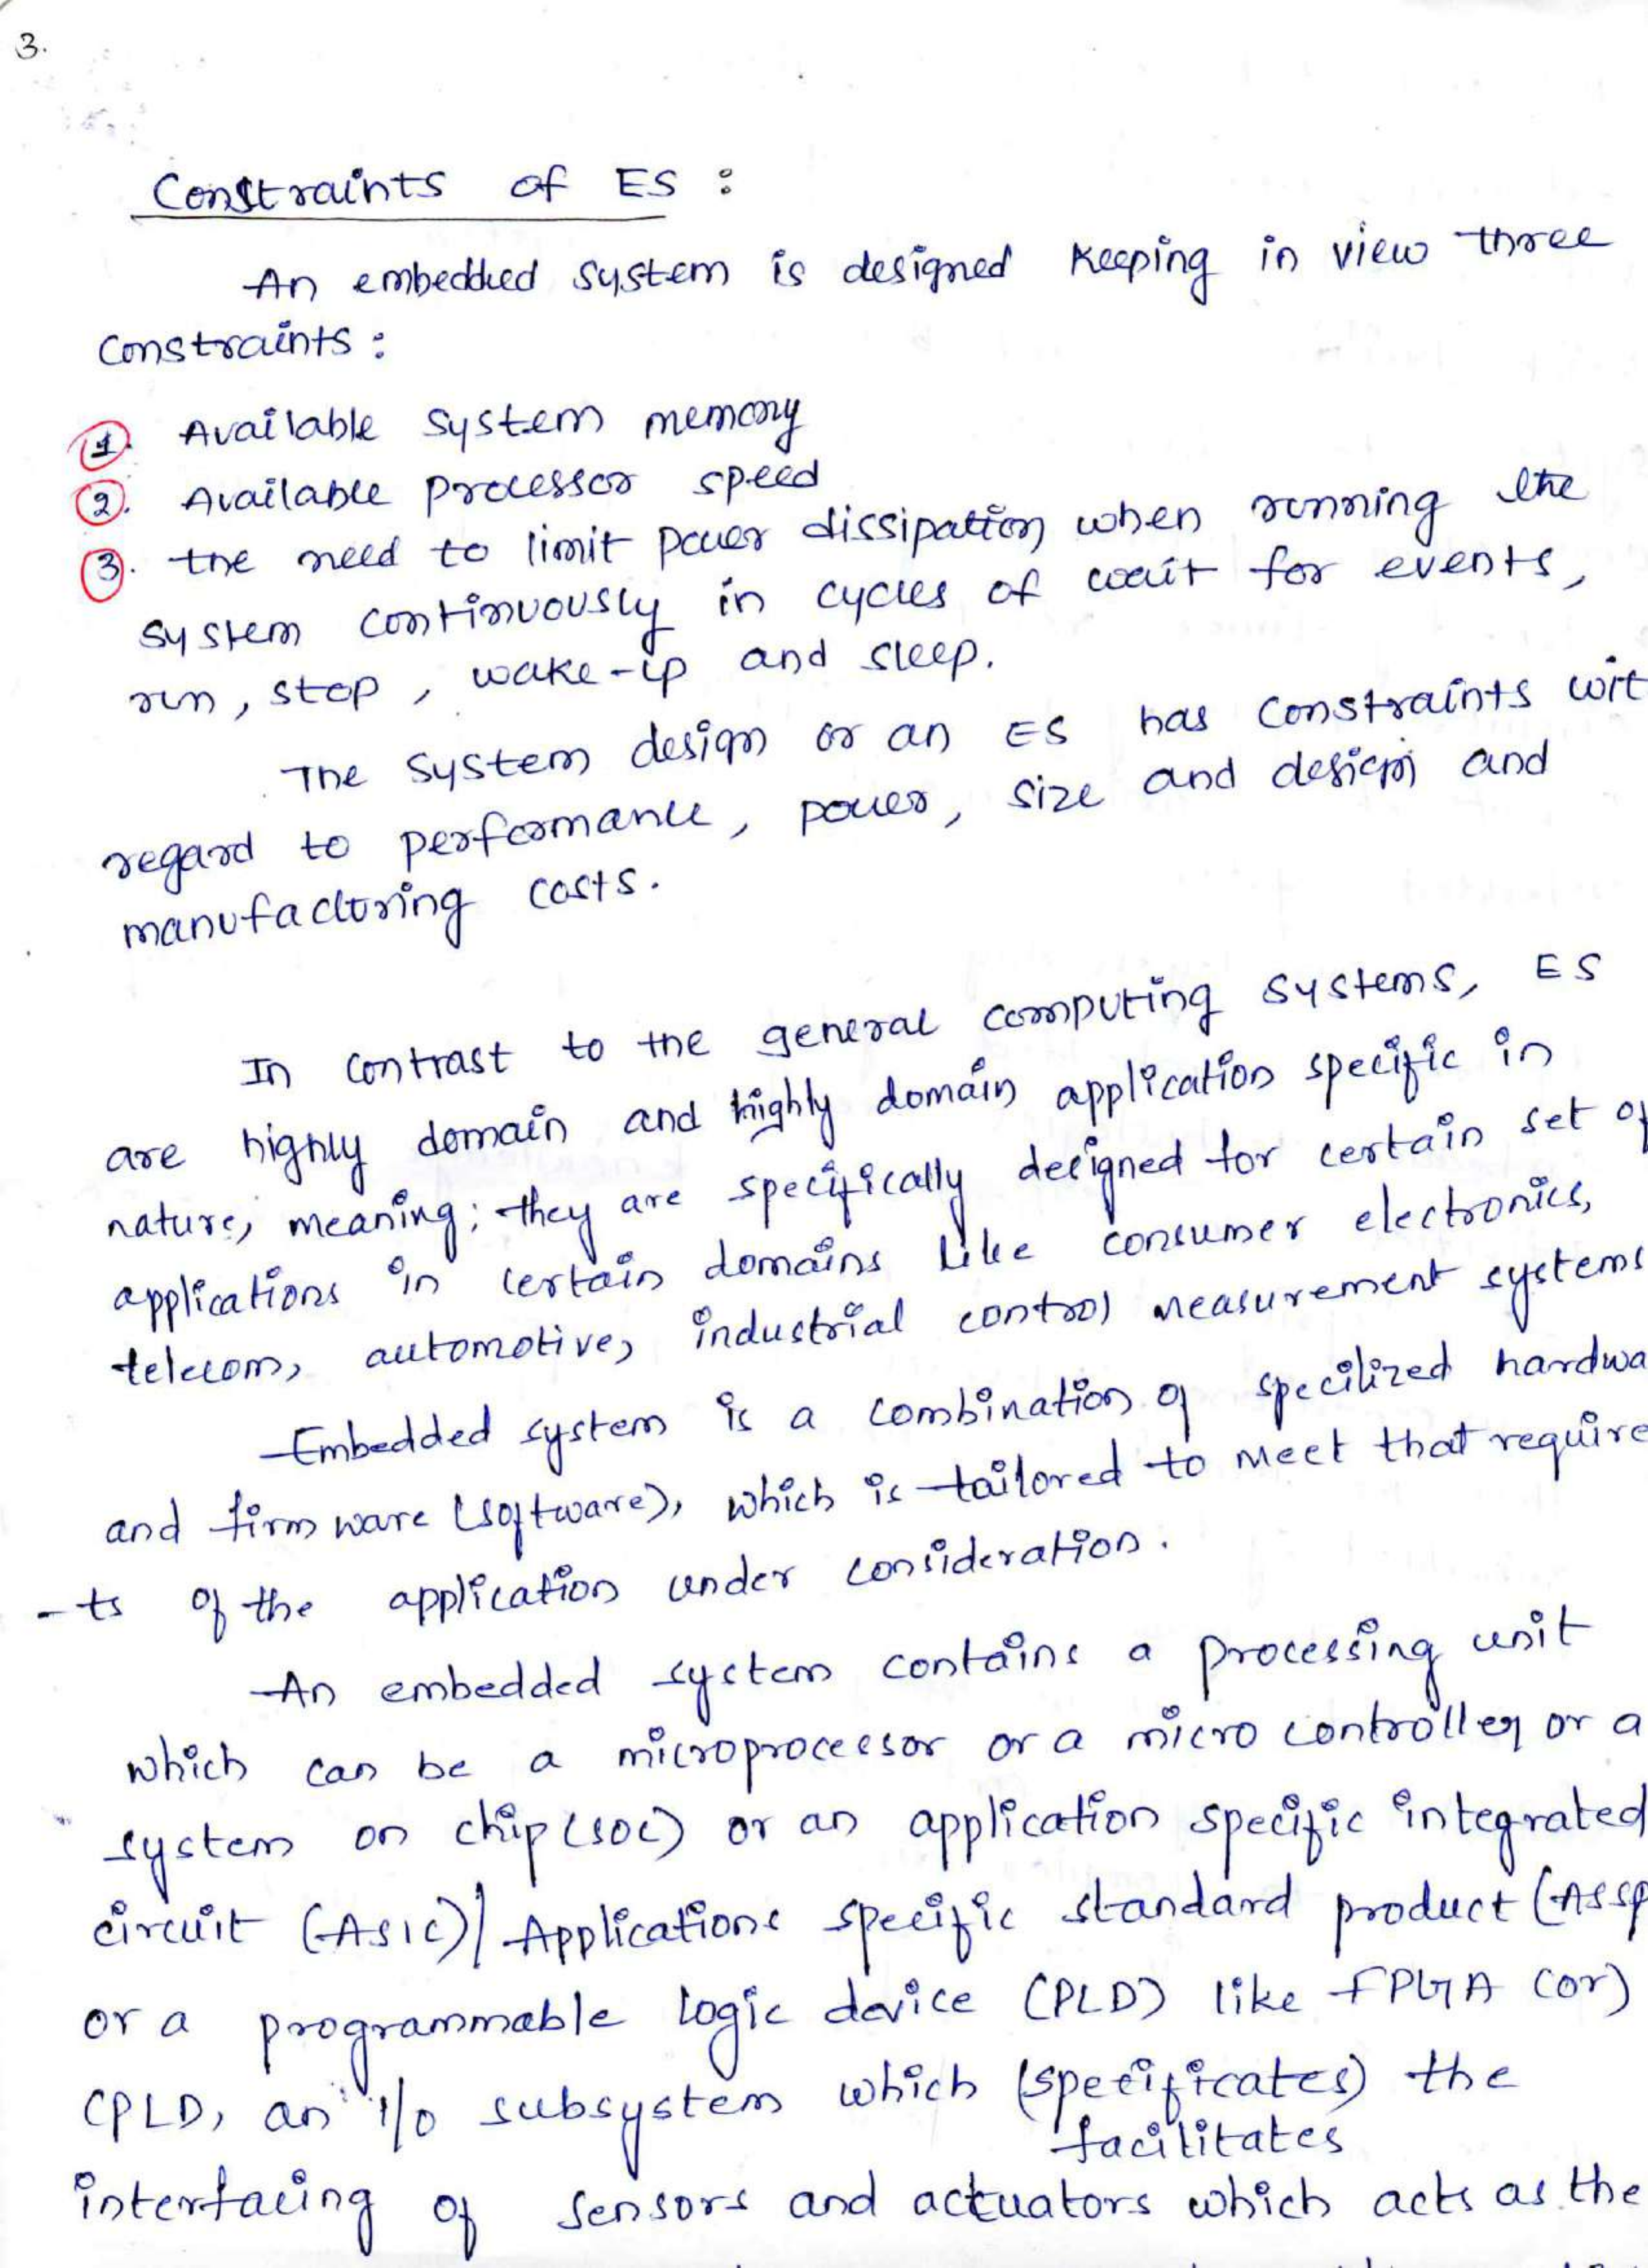 3.
Constraints of ES :
An embedded system is designed keeping in view three
constraints :
1. Available system memory
2. Available processor speed
3. the need to limit power dissipation when running the
system continuously in cycles of wait for events,
run, stop, wake-up and sleep.
The system design or an ES has constraints wit
regard to performance, power, size and design and
manufacturing costs.
In contrast to the general computing systems, ES
are highly domain and highly domain application specific in
nature, meaning; they are specifically designed for certain set of
applications in certain domains like consumer electronics,
telecom, automotive, industrial control measurement systems
Embedded system is a combination of specilized hardwa
and firm ware (software), which is tailored to meet that require
-ts of the application under consideration.
An embedded system contains a processing unit
which can be a microprocessor or a micro controller or a
system on chip (SOC) or an application specific integrated
circuit (ASIC)/ Applications specific standard product (ASSP
or a programmable logic device (PLD) like FPGA (or)
CPLD, an I/o subsystem which (specificates) the
facilitates
interfacing of sensors and actuators which acts as the